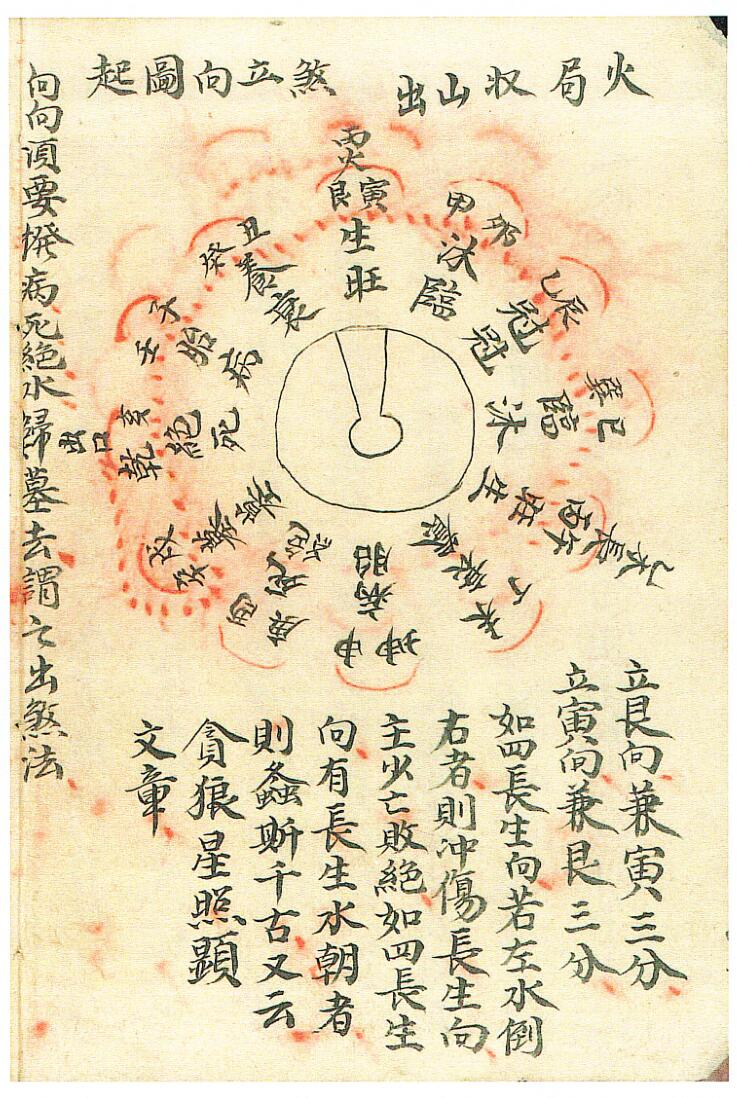 火局收山出
煞立向圖起
丙火
艮寅
生
旺
甲卯
沐
臨
乙辰
冠
冠
巽巳
臨
沐
丙午
旺
生
乙木長
丁未
衰
養
坤申
病
胎
庚酉
死
絕
辛戌
墓
墓
乾亥
絕
死
出口
壬子
胎
病
癸丑
養
衰
立艮向兼寅三分
立寅向兼艮三分
如四長生向若左水倒
右者則冲傷長生向
主少亡敗絕如四長生
向有長生水朝者
則螽斯千古又云
貪狼星照顯
文章
向向須要撥病死絕水歸墓去謂之出煞法